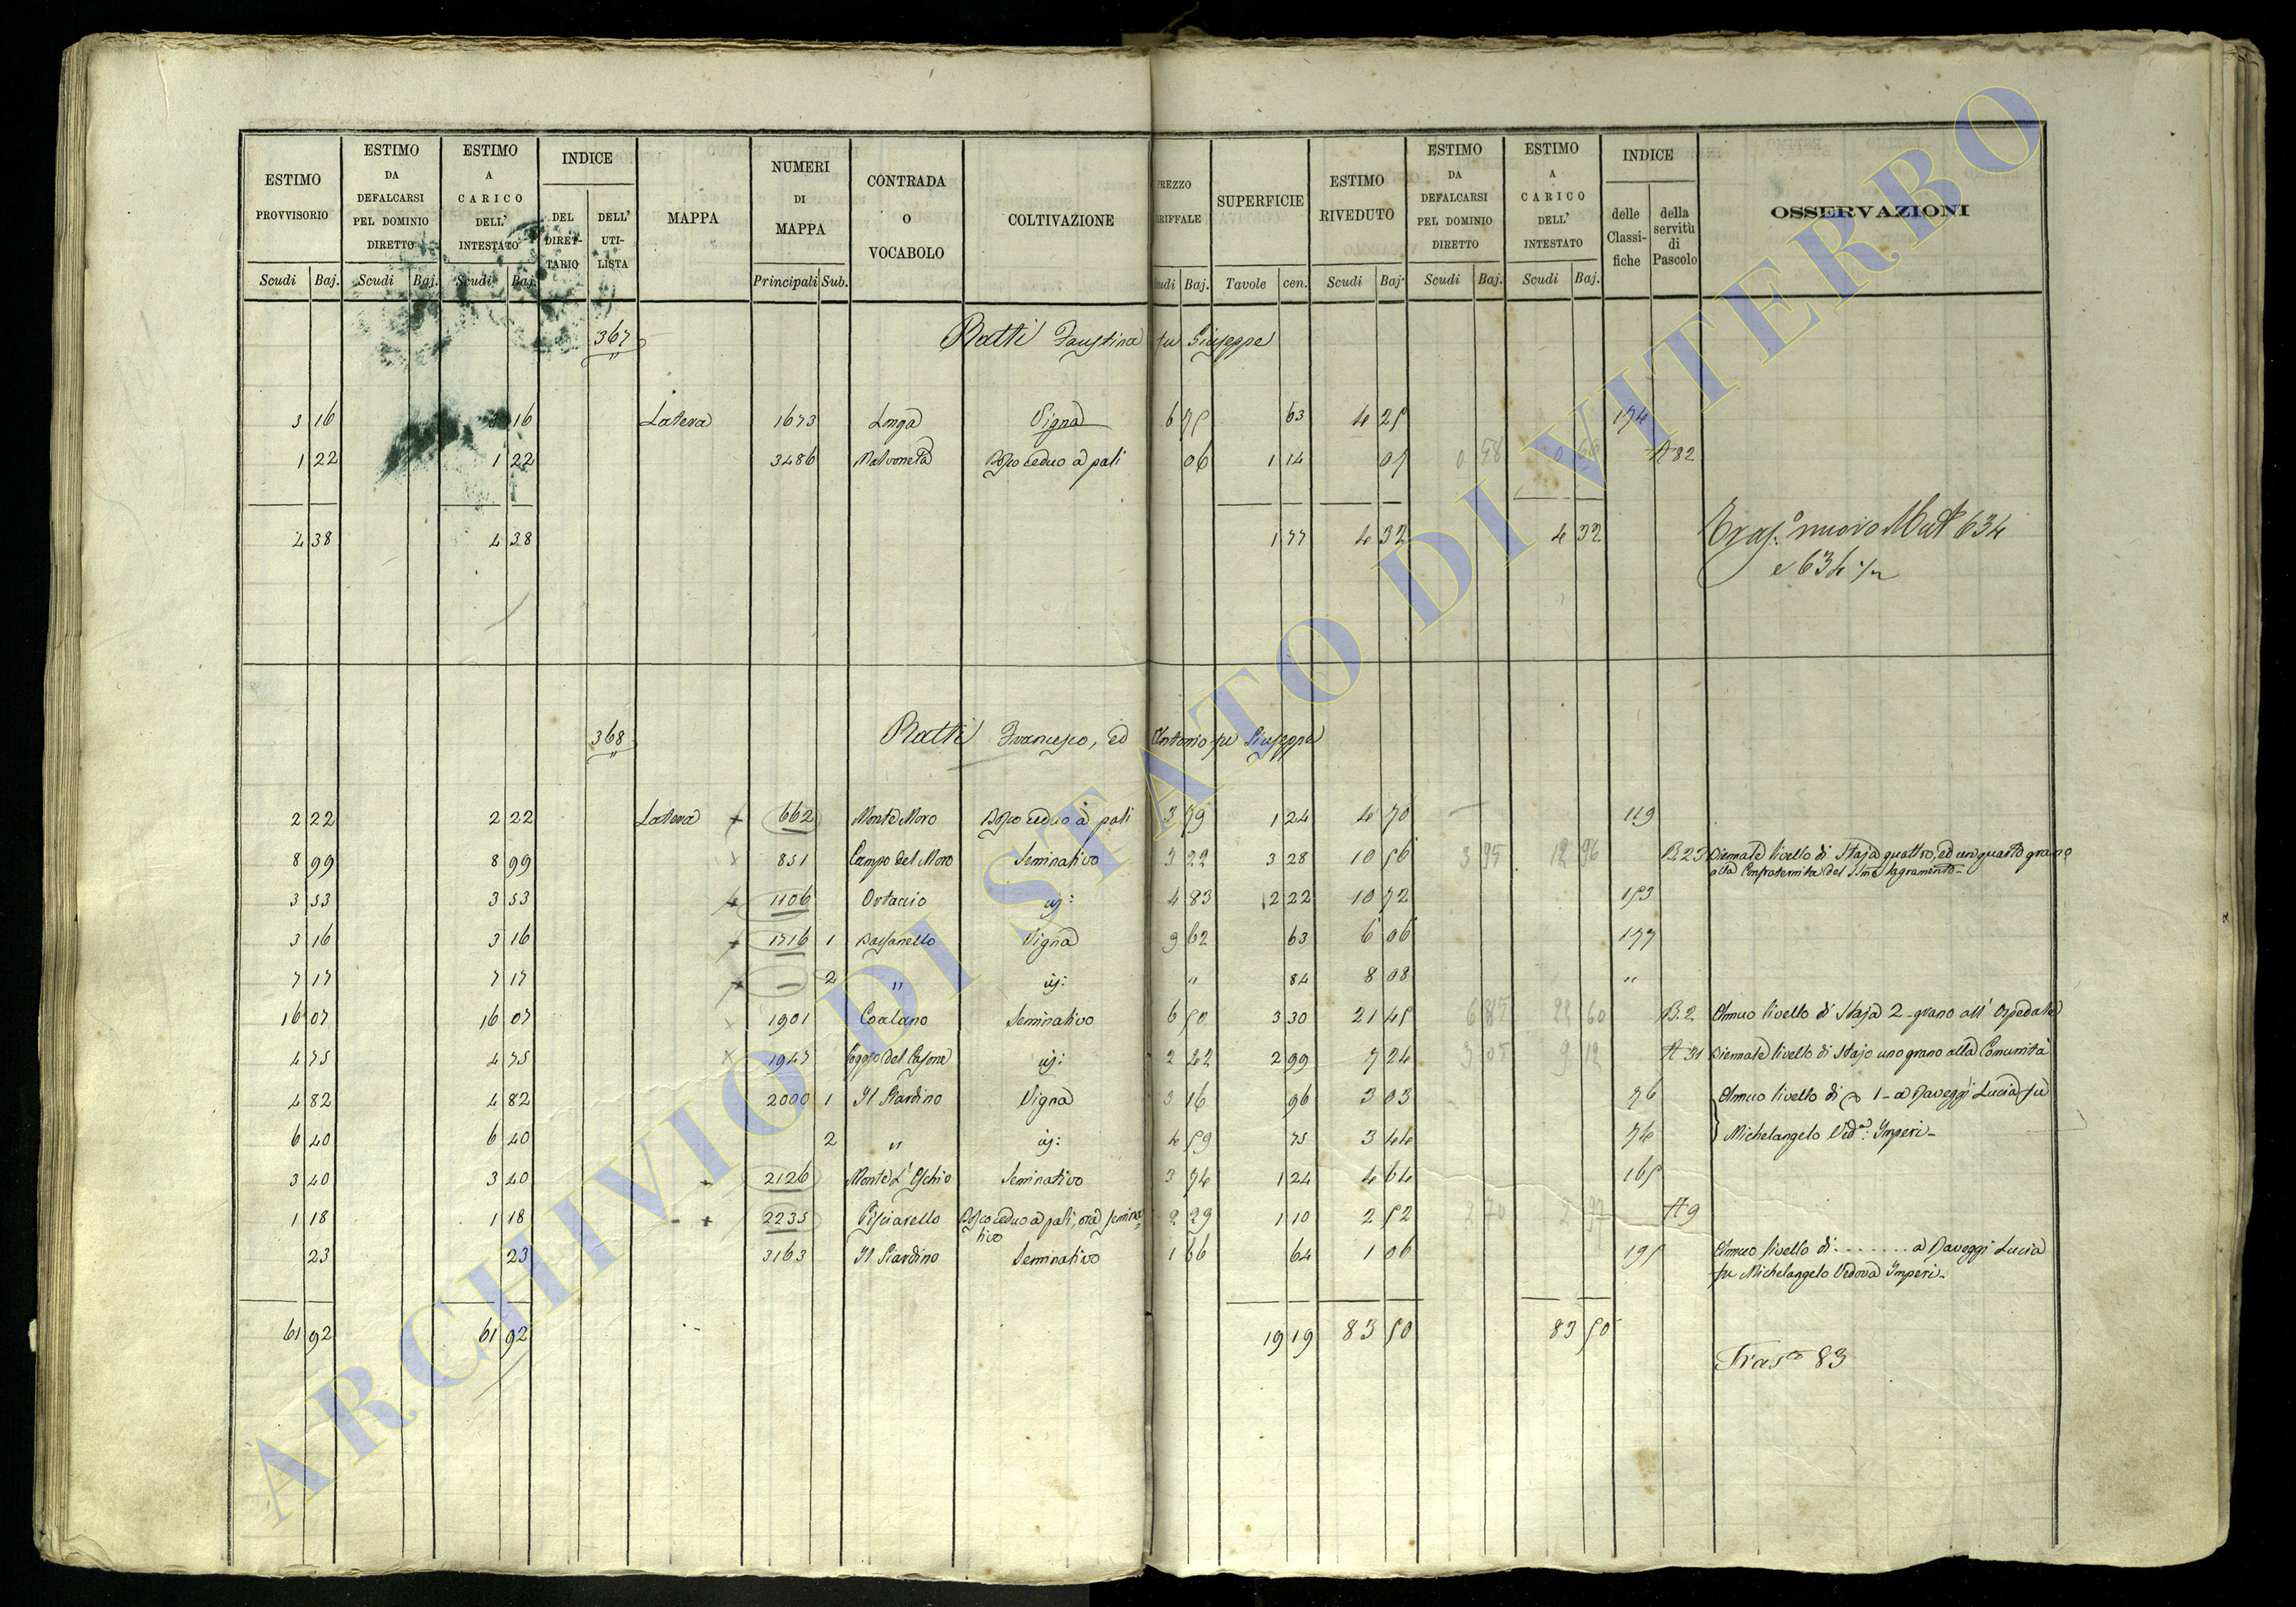 ESTIMO PROVVISORIO | ESTIMO DA DEFALCARSI PEL DOMINIO DIRETTO | ESTIMO A CARICO DELL' INTESTATO | INDICE | MAPPA | NUMERI DI MAPPA | CONTRADA O VOCABOLO | COLTIVAZIONE | PREZZO TARIFFALE | SUPERFICIE | ESTIMO RIVEDUTO | ESTIMO DA DEFALCARSI PEL DOMINIO DIRETTO | ESTIMO A CARICO DELL' INTESTATO | INDICE | OSSERVAZIONI
DEL DIRETTARIO | DELL' UTILISTA | delle Classifiche | della servitù di Pascolo
Scudi Baj. | Scudi Baj. | Scudi Baj. | Principali Sub. | Scudi Baj. | Tavole cen. | Scudi Baj. | Scudi Baj. | Scudi Baj.
367 Ratti Faustina fu Giuseppe
3 16 | 3 16 | Latera | 1673 | Longa | Vigna | 6 75 | 63 | 4 25 | 174
1 22 | 1 22 | 3486 | Bosco ceduo a pali | 06 | 1 14 | 07 | A 82
4 38 | 4 38 | 1 77 | 4 32 | 4 32
nuovo Mat 634
e 634 1/2
368 Ratti Francesco, ed Antonio fu Giuseppe
2 22 | 2 22 | Latera | 662 | Monte Moro | Bosco ceduo a pali | 3 79 | 1 24 | 4 70 | 119
8 99 | 8 99 | 851 | Campo del Moro | Seminativo | 3 22 | 3 28 | 10 56 | 3 95 | 12 96 | B. 23 | Biennale livello di Staja quattro, ed un quarto grano
alla Confraternita del SSmo Sagramento
3 53 | 3 53 | 1106 | Ortaccio | id: | 4 83 | 2 22 | 10 72 | 153
3 16 | 3 16 | 1716 | 1 | Vigna | 9 62 | 63 | 6 06 | 177
7 17 | 7 17 | — | 2 | " | id: | " | 84 | 8 08 | "
16 07 | 16 07 | 1901 | Coalano | Seminativo | 6 50 | 3 30 | 21 45 | 6 85 | 22 60 | B. 2 | Annuo livello di Staja 2 grano all' Ospedale
4 75 | 4 75 | 1947 | Poggio del Casone | id: | 2 42 | 2 99 | 7 24 | 3 05 | 9 12 | A 31 | Biennale livello di Stajo uno grano alla Comunità
4 82 | 4 82 | 2000 | 1 | Il Giardino | Vigna | 3 16 | 96 | 3 03 | 76 | Annuo livello di 1 a Daveggi Lucia fu
6 40 | 6 40 | 2 | " | id: | 4 59 | 75 | 3 44 | 74 | Michelangelo Ved.a Imperi
3 40 | 3 40 | 2126 | Monte L'Eschio | Seminativo | 3 74 | 1 24 | 4 64 | 165
1 18 | 1 18 | 2235 | Pisciarello | Bosco ceduo a pali, ora semina
tivo | 2 29 | 1 10 | 2 52 | A 9
23 | 23 | 3163 | Il Giardino | Seminativo | 1 66 | 64 | 1 06 | 195 | Annuo livello di ........ a Daveggi Lucia
fu Michelangelo Vedova Imperi
61 92 | 61 92 | 19 19 | 83 50 | 83 50
Trasto 83
ARCHIVIO DI STATO DI VITERBO